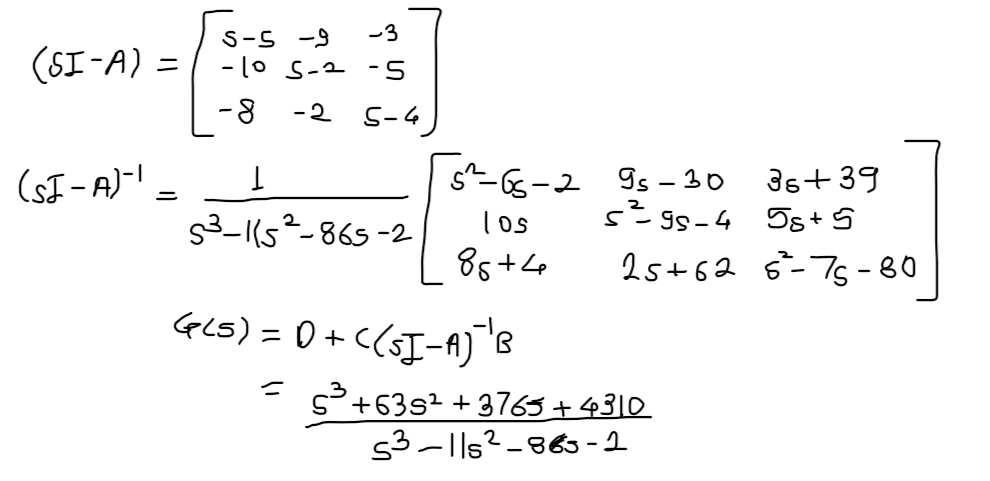 (sI-A) = [s-5 -9 -3
-10 s-2 -5
-8 -2 s-4]
(sI-A)^-1 = 1/(s^3-11s^2-86s-2) [s^2-6s-2 9s-30 3s+39
10s s^2-9s-4 5s+5
8s+4 2s+62 s^2-7s-80]
G(s) = D + C(sI-A)^-1 B
= (s^3+63s^2+376s+4310)/(s^3-11s^2-86s-2)